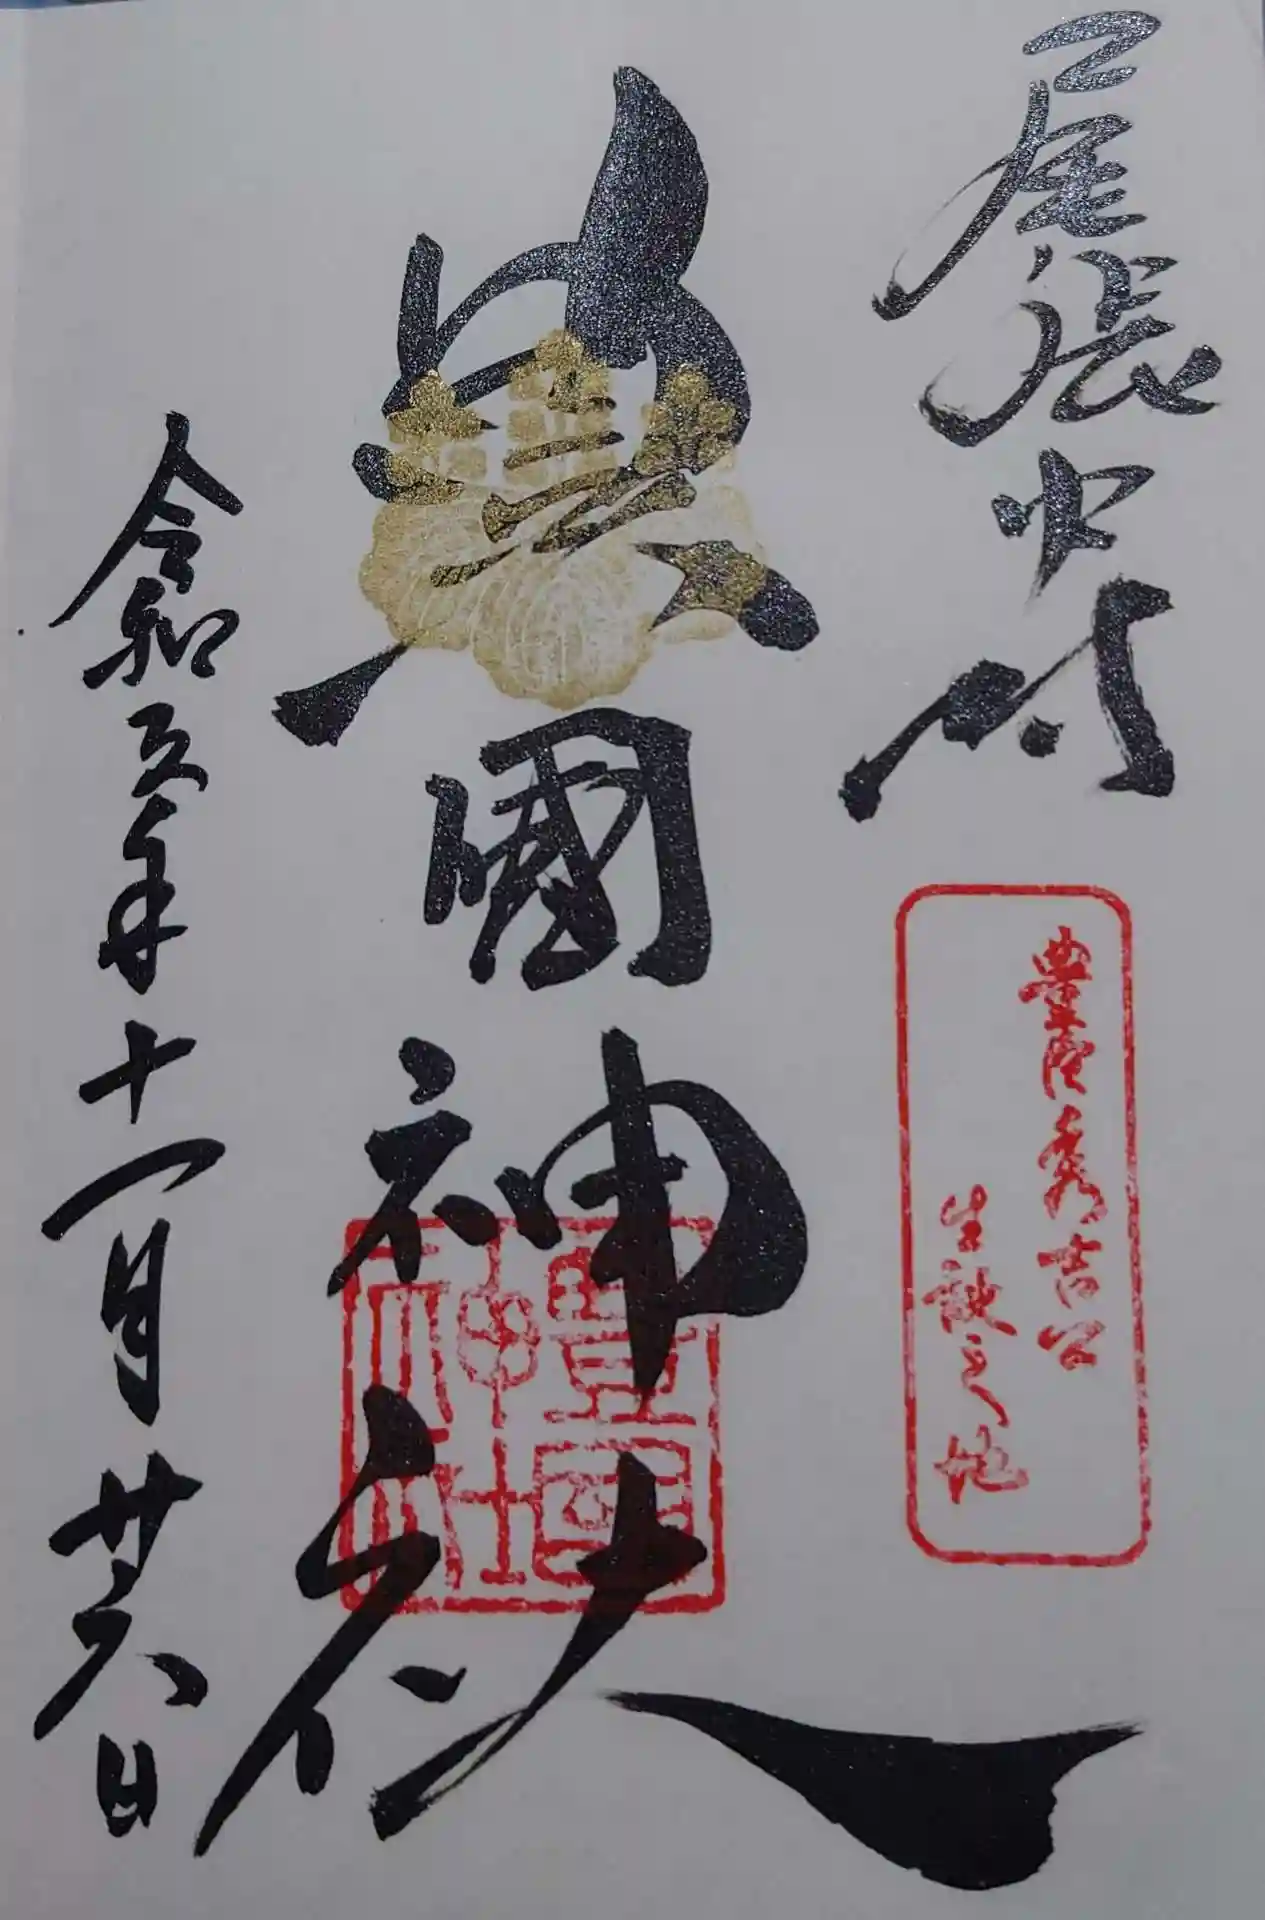 尾張中村
豊臣秀吉公
生誕之地
豊國神社
豊國
神社
令和五年十一月廿六日